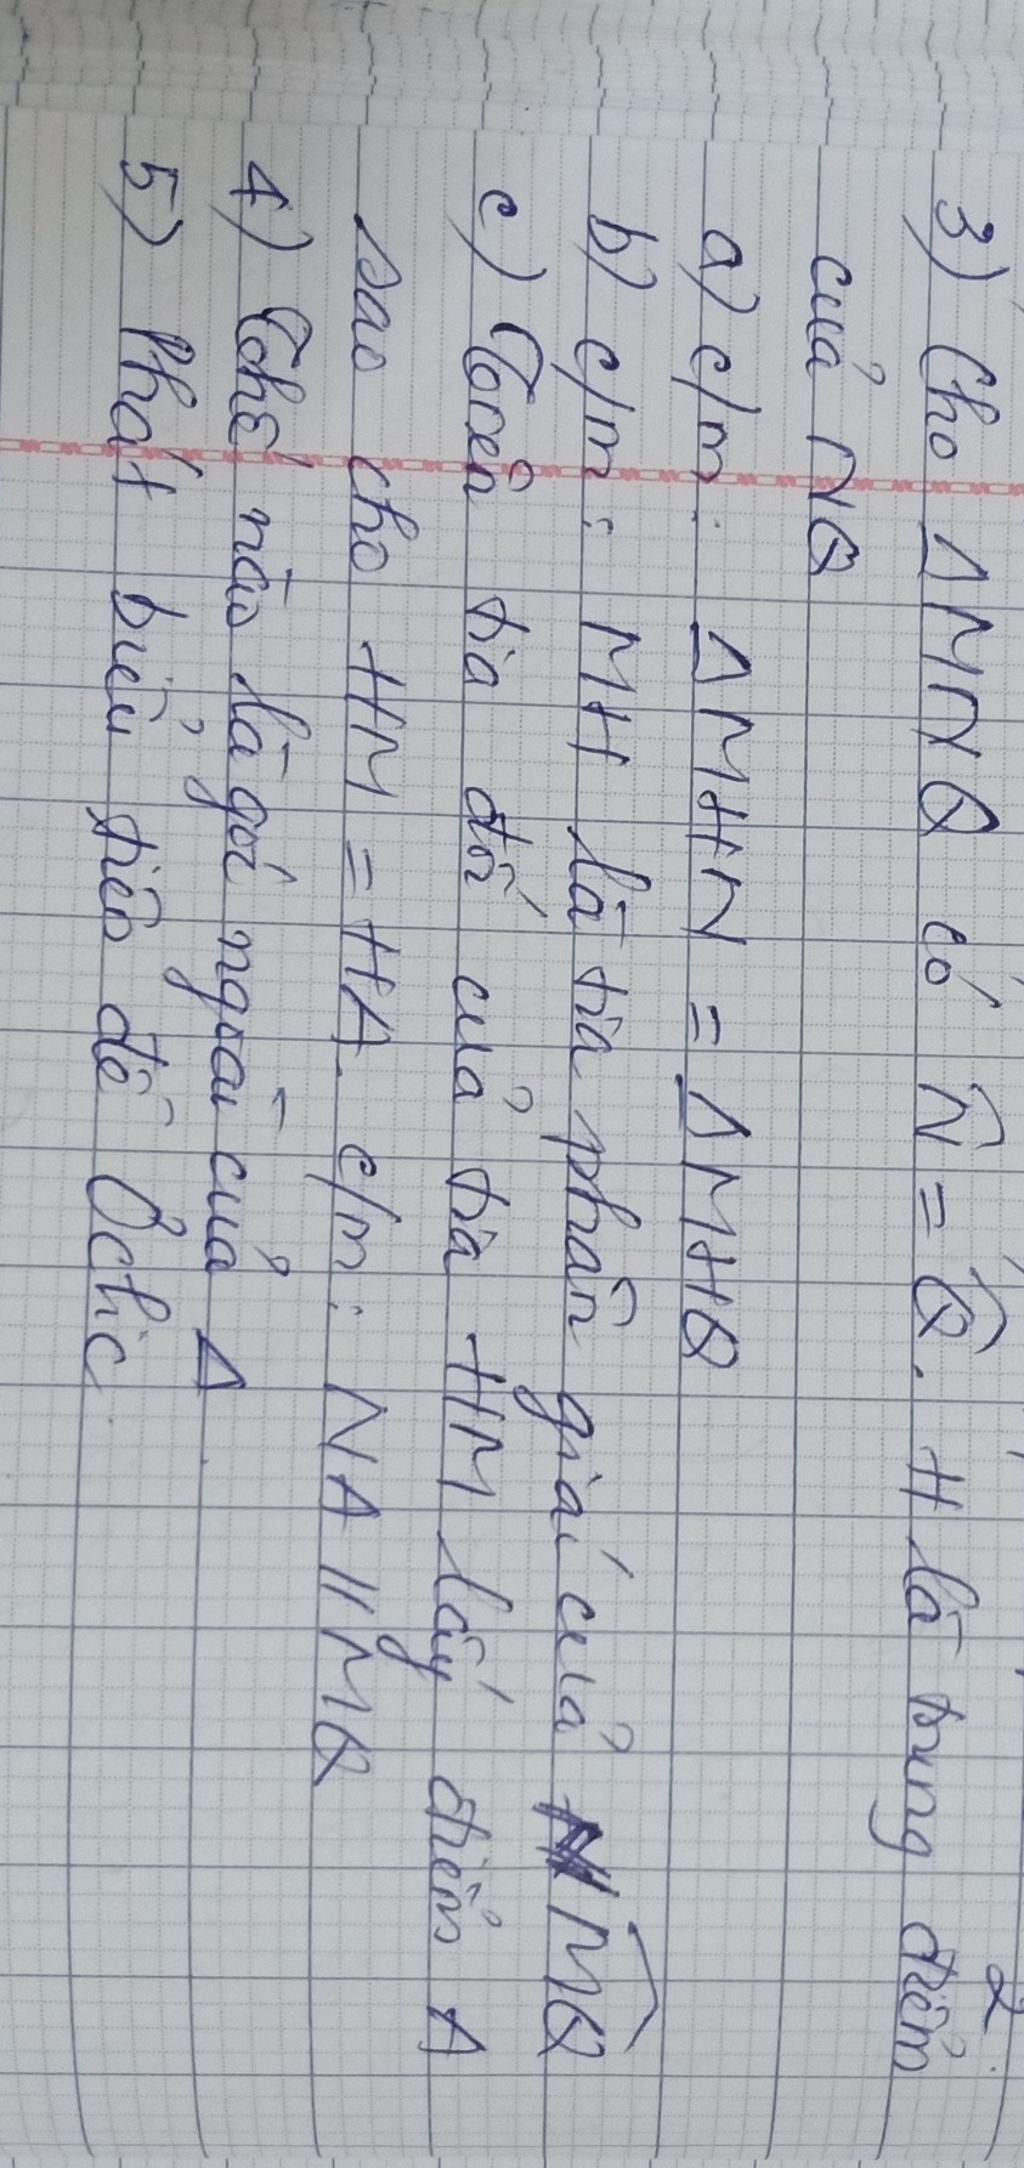 3) Cho ΔMNQ có N̂ = Q̂. H là trung điểm
của NQ
a) c/m: ΔMHN = ΔMHQ
b) c/m: MH là tia phân giác của NMQ
c) Trên tia đối của tia HM lấy điểm A
sao cho HM = HA. c/m: NA // MQ
4) Thế nào là góc ngoài của Δ.
5) Phát biểu tiên đề Ơclic.